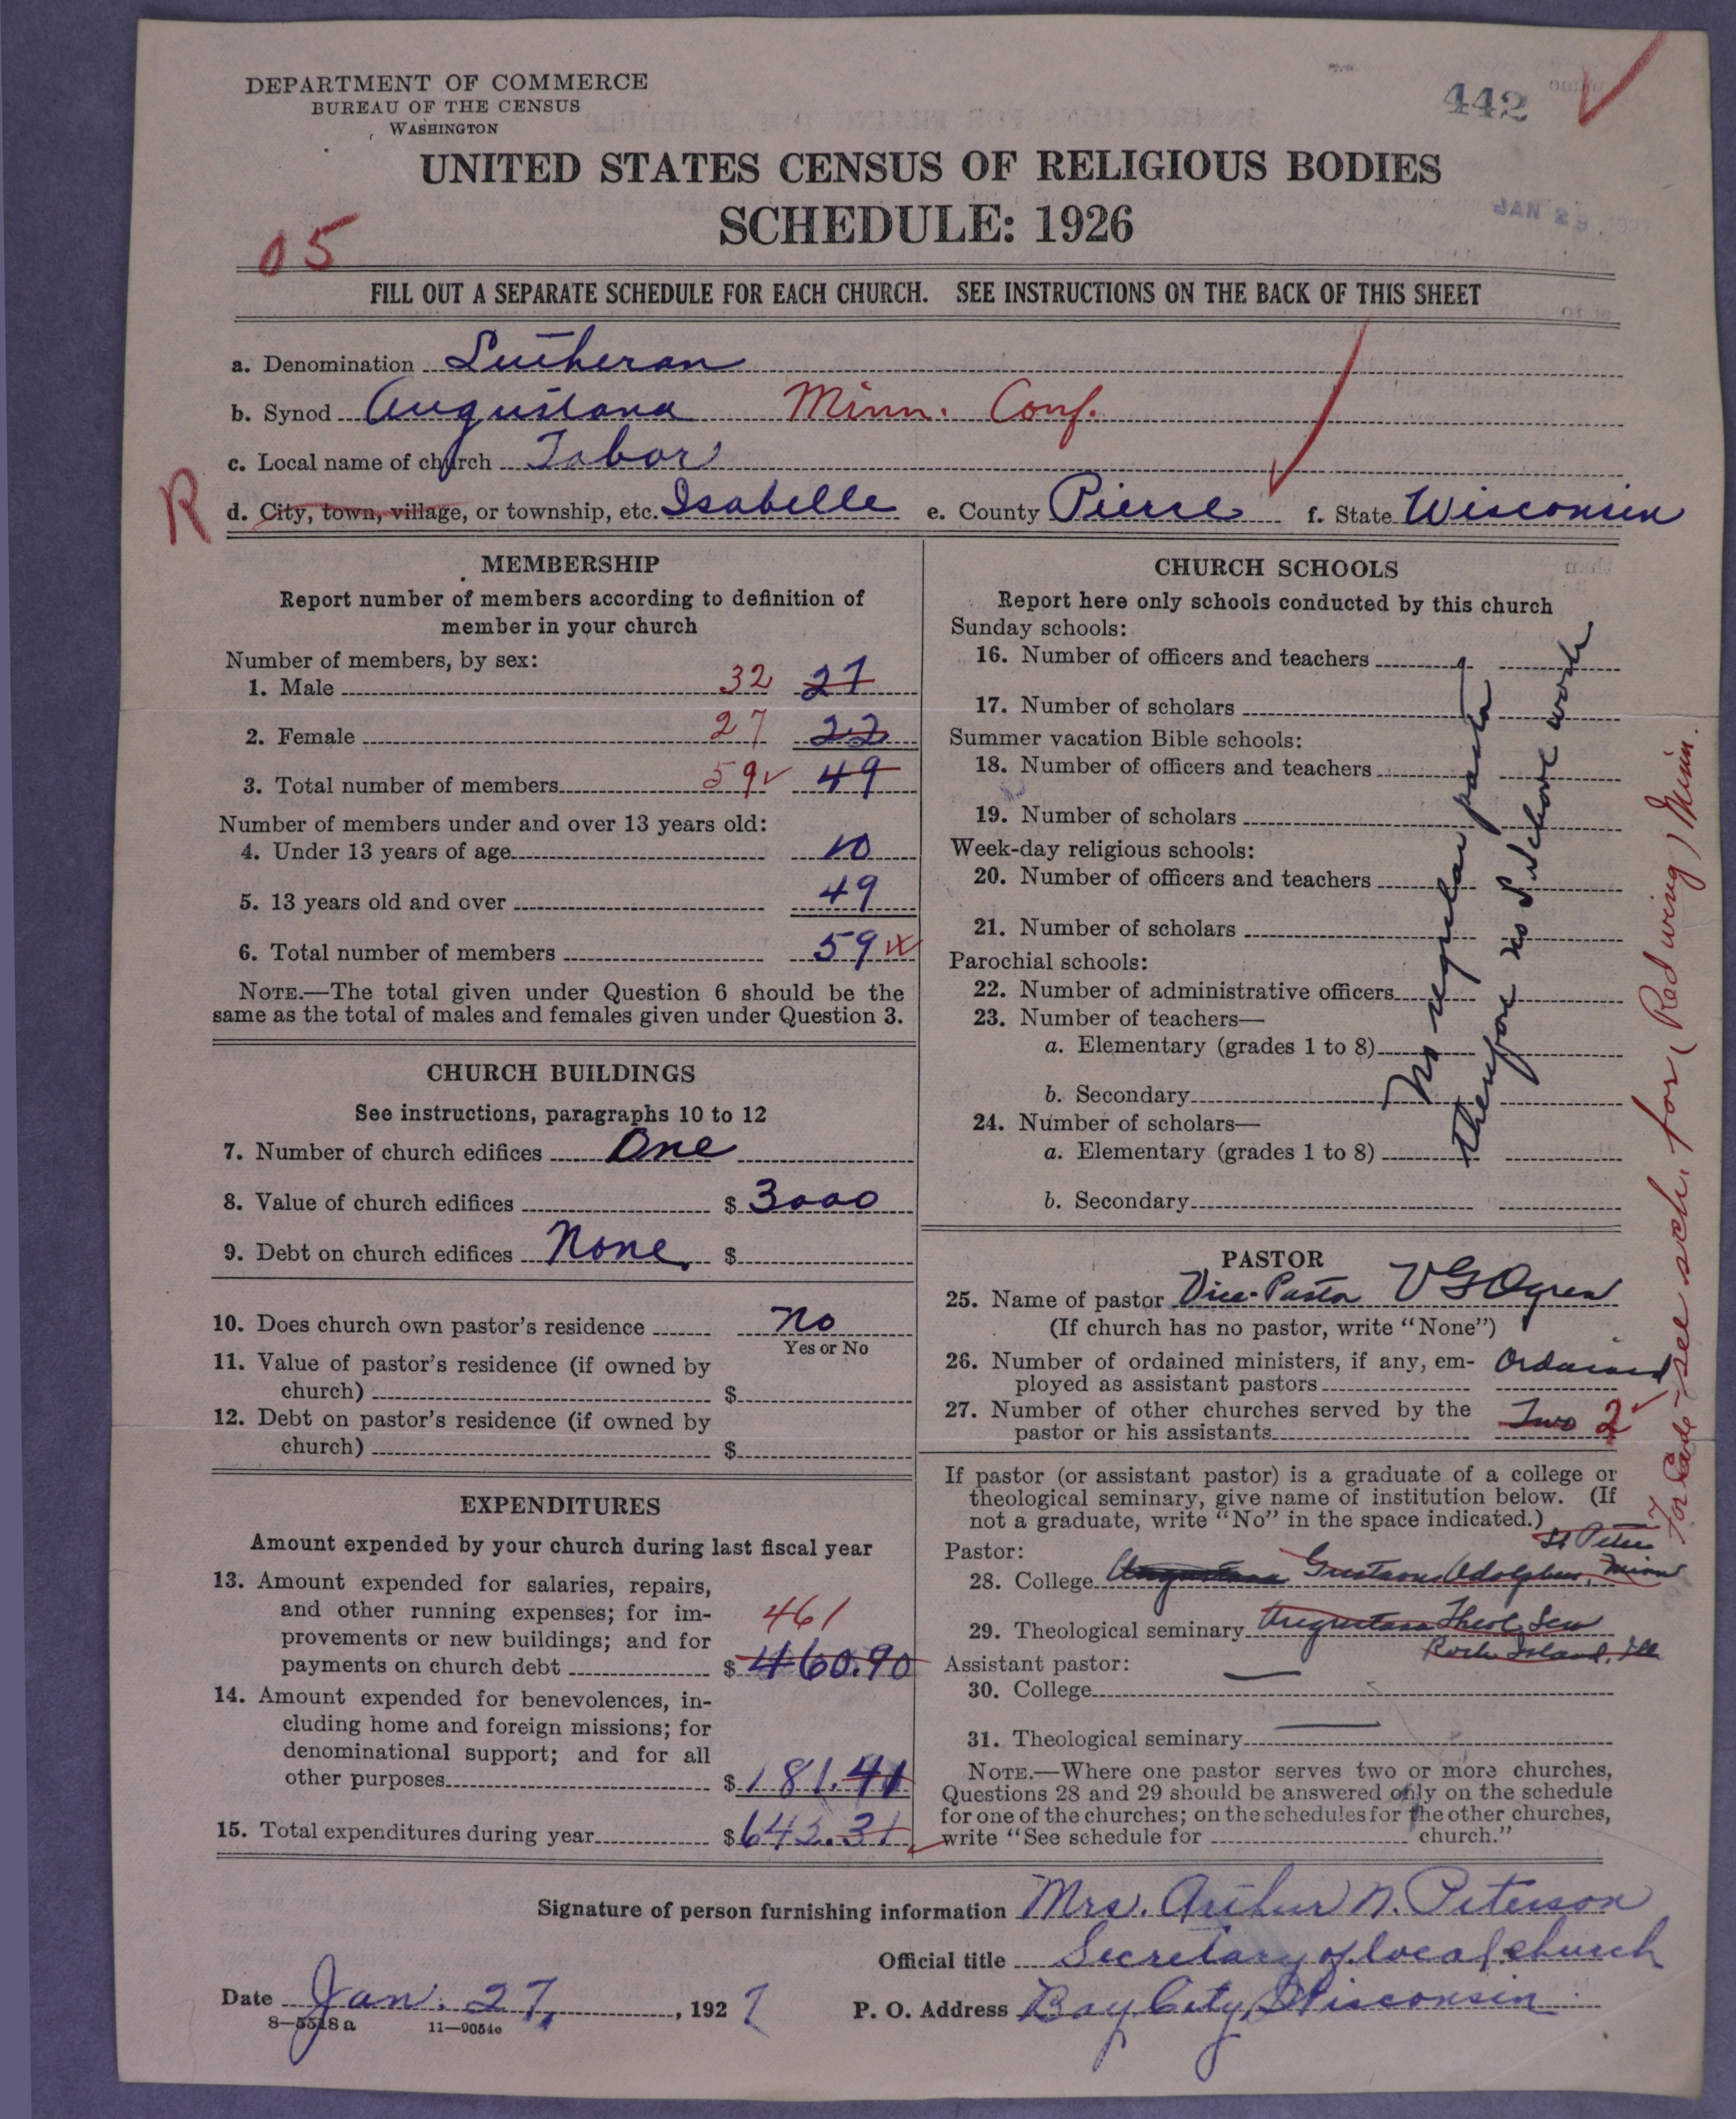 DEPARTMENT OF COMMERCE
BUREAU OF THE CENSUS
WASHINGTON
442
UNITED STATES CENSUS OF RELIGIOUS BODIES
SCHEDULE: 1926
JAN 29
05
FILL OUT A SEPARATE SCHEDULE FOR EACH CHURCH. SEE INSTRUCTIONS ON THE BACK OF THIS SHEET
a. Denomination Lutheran
b. Synod Augustana Minn. Conf.
c. Local name of church Tabor
R
d. City, town, village, or township, etc. Isabelle e. County Pierce f. State Wisconsin
MEMBERSHIP
Report number of members according to definition of
member in your church
Number of members, by sex:
1. Male 32 27
2. Female 27 22
3. Total number of members 59 49
Number of members under and over 13 years old:
4. Under 13 years of age 10
5. 13 years old and over 49
6. Total number of members 59
NOTE.—The total given under Question 6 should be the
same as the total of males and females given under Question 3.
CHURCH BUILDINGS
See instructions, paragraphs 10 to 12
7. Number of church edifices One
8. Value of church edifices $ 3000
9. Debt on church edifices None $
10. Does church own pastor's residence No
Yes or No
11. Value of pastor's residence (if owned by
church) $
12. Debt on pastor's residence (if owned by
church) $
EXPENDITURES
Amount expended by your church during last fiscal year
13. Amount expended for salaries, repairs,
and other running expenses; for im-
provements or new buildings; and for
payments on church debt $ 460.90
461
14. Amount expended for benevolences, in-
cluding home and foreign missions; for
denominational support; and for all
other purposes $ 181.41
15. Total expenditures during year $ 642.31
CHURCH SCHOOLS
Report here only schools conducted by this church
Sunday schools:
16. Number of officers and teachers
17. Number of scholars
Summer vacation Bible schools:
18. Number of officers and teachers
19. Number of scholars
Week-day religious schools:
20. Number of officers and teachers
21. Number of scholars
Parochial schools:
22. Number of administrative officers
23. Number of teachers—
a. Elementary (grades 1 to 8)
b. Secondary
24. Number of scholars—
a. Elementary (grades 1 to 8)
b. Secondary
No regular pastor
therefore no School work
PASTOR
25. Name of pastor Vice-Pastor V G Ogren
(If church has no pastor, write "None")
26. Number of ordained ministers, if any, em-
ployed as assistant pastors Ordained
27. Number of other churches served by the
pastor or his assistants Two 2
If pastor (or assistant pastor) is a graduate of a college or
theological seminary, give name of institution below. (If
not a graduate, write "No" in the space indicated.)
Pastor:
St Peter
28. College Augustana Gustavus Adolphus, Minn
29. Theological seminary Augustana Theol. Sem
Rock Island, Ill
Assistant pastor:
30. College
31. Theological seminary
NOTE.—Where one pastor serves two or more churches,
Questions 28 and 29 should be answered only on the schedule
for one of the churches; on the schedules for the other churches,
write "See schedule for church."
see sch. for (Red wing) Minn.
Signature of person furnishing information Mrs. Arthur N. Peterson
Official title Secretary of local church
Date Jan. 27, 1927 P. O. Address Bay City, Wisconsin
8—5518a 11—9054c